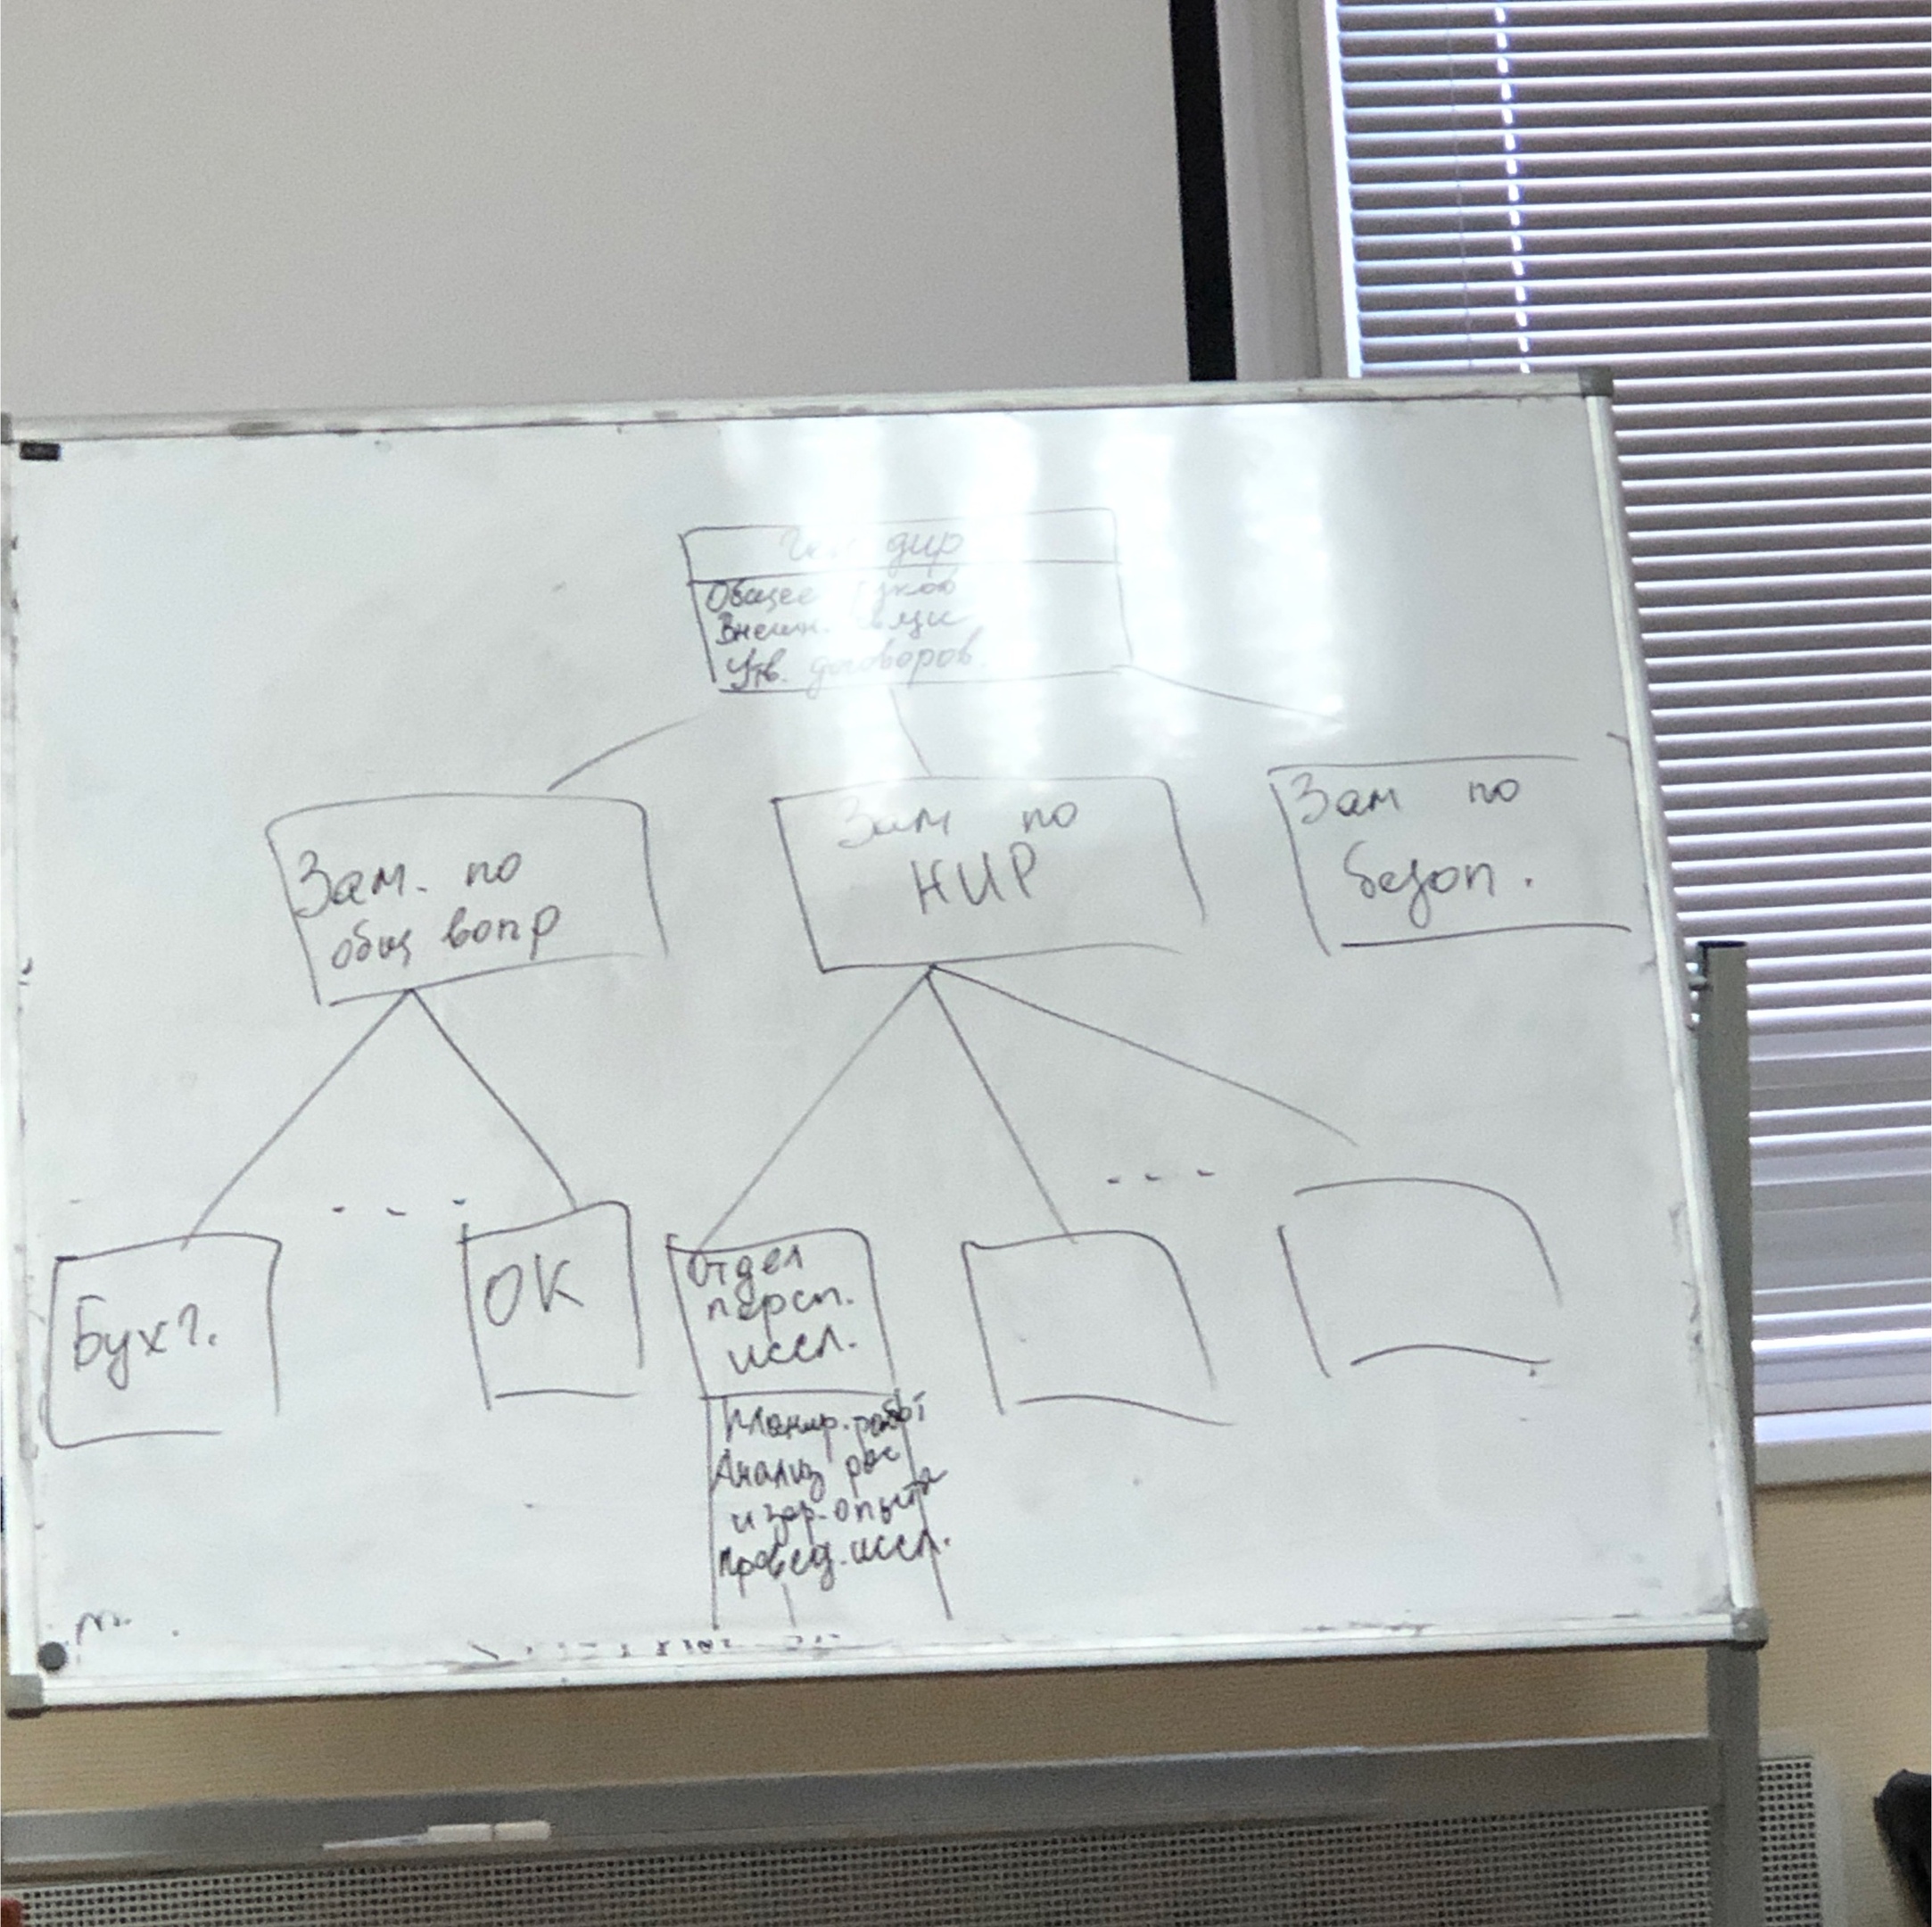 Ген дир
Общее руков
Внешн. связи
Утв. договоров.
Зам. по
общ вопр
Зам по
НИР
Зам по
безоп.
Бухг.
...
ОК
Отдел
персп.
иссл.
...
Планир. работ
Анализ рос
и зар. опыта
Провед. иссл.